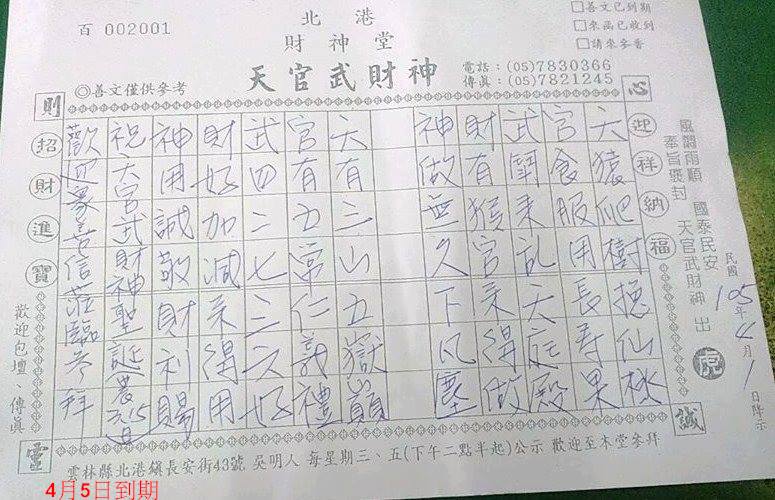 百 002001
北港
財神堂
天官武財神
◎善文僅供參考
電話：(05)7830366
傳真：(05)7821245
□善文已到期
□來函已收到
□請來參香
則
心
靈
誠
迎祥納福
招財進寶
風調雨順 國泰民安
奉旨褒封 天官武財神 出
虎
民國105年4月1日降示
六猿爬樹換仙桃
宮食服用長壽果
武鬧來亂天庭殿
財有猴官來得做
神做無久下凡塵
天有三山五嶽巔
官有五常仁義禮
武四二七三文好
財好加減來得用
神用誠敬財利賜
祝天官武財神聖誕農3.15日
歡迎眾善信蒞臨參拜
歡迎包壇、傳真
雲林縣北港鎮長安街43號 吳明人 每星期三、五(下午二點半起)公示 歡迎至本堂參拜
4月5日到期